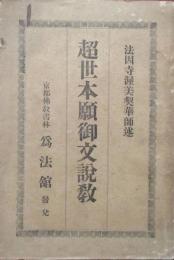 法因寺渥美契華師述
超世本願御文說教
京都佛敎書林 爲法館 發兌